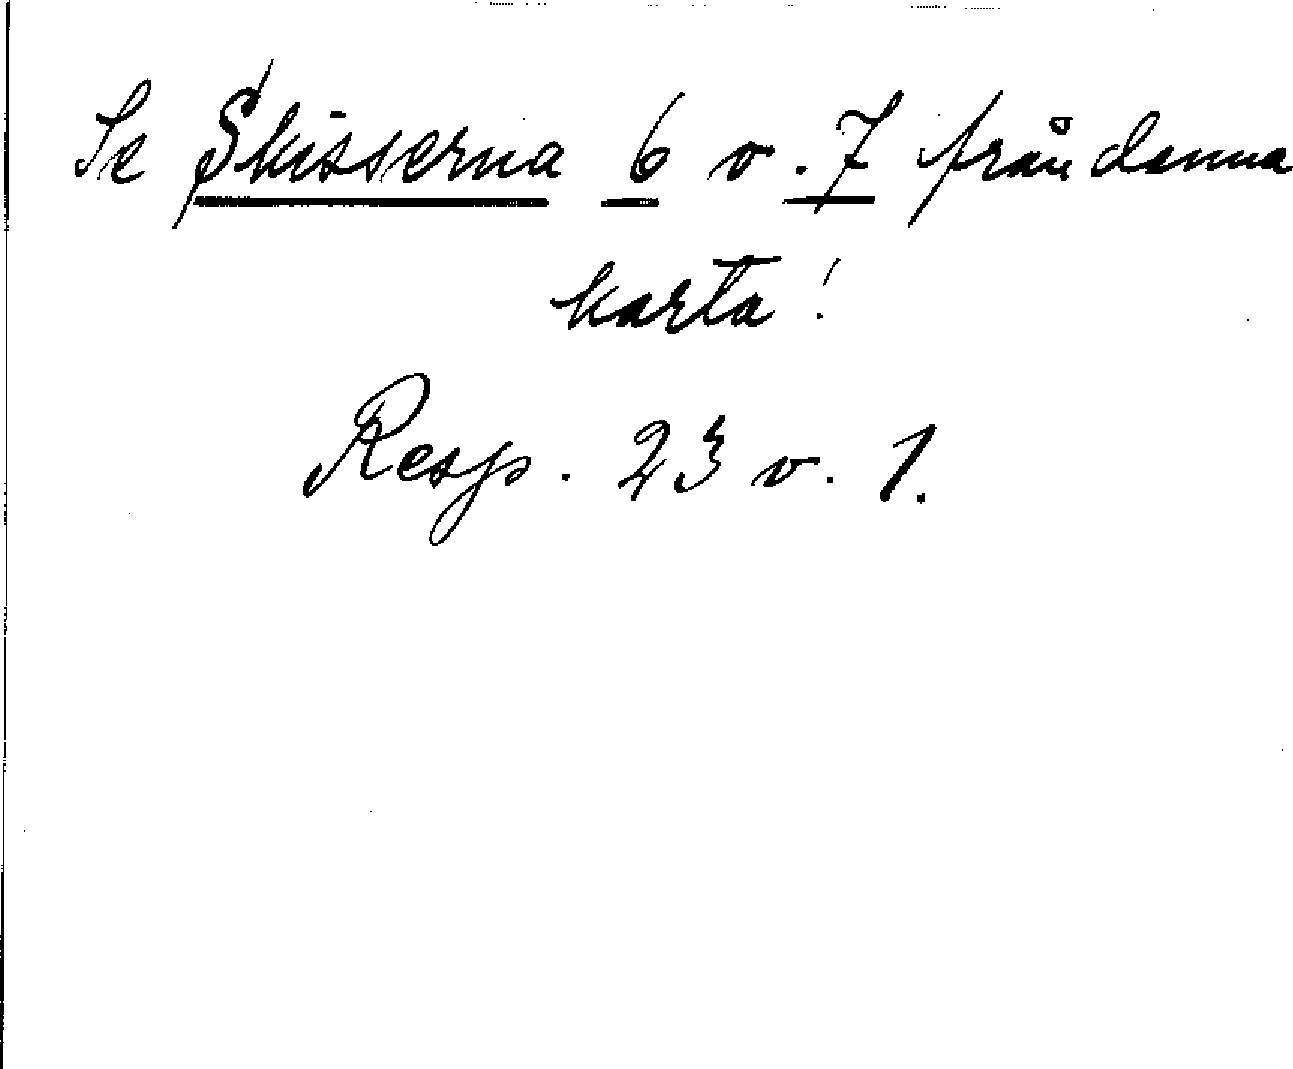 Se Skisserna 6 o. 7 från denna
karta!
Resp. 23 o. 1.